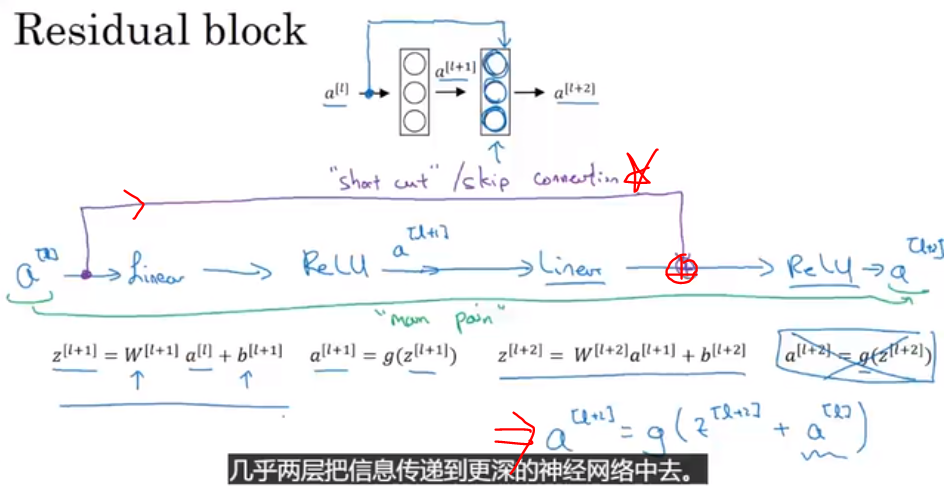 Residual block
a^[l] a^[l+1] a^[l+2]
"short cut" / skip connection
a^[l] Linear ReLU a^[l+1] Linear ReLU a^[l+2]
"main path"
z^[l+1] = W^[l+1] a^[l] + b^[l+1] a^[l+1] = g(z^[l+1]) z^[l+2] = W^[l+2] a^[l+1] + b^[l+2] a^[l+2] = g(z^[l+2])
⇒ a^[l+2] = g(z^[l+2] + a^[l])
几乎两层把信息传递到更深的神经网络中去。